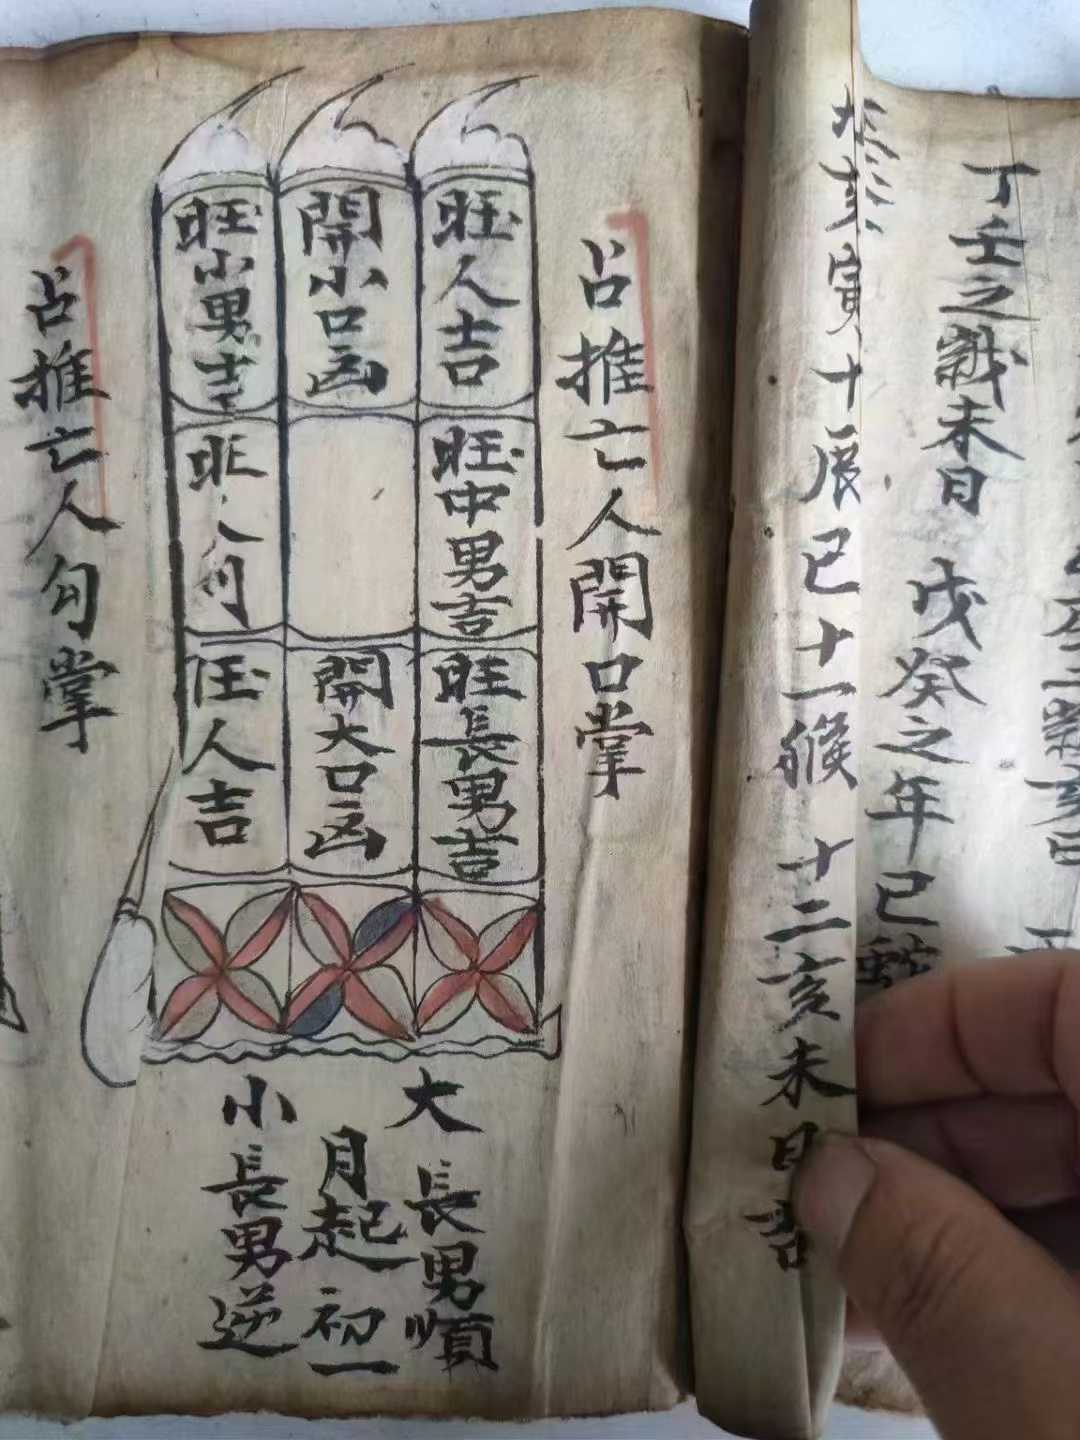 丁壬之歲未日
戊癸之年巳
寅十辰巳十一猴十二亥未日吉
占推亡人開口掌
旺人吉
旺中男吉
旺長男吉
開小口凶
開大口凶
旺小男吉
旺人
旺人吉
大
小
月起初一
長男順
長男逆
占推亡人勾掌